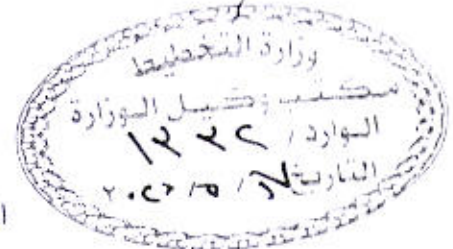 وزارة التخطيط
مكتب وكيل الوزارة
الوارد / ١٣٣٢
التاريخ / ٥ / ٢٠٢٦